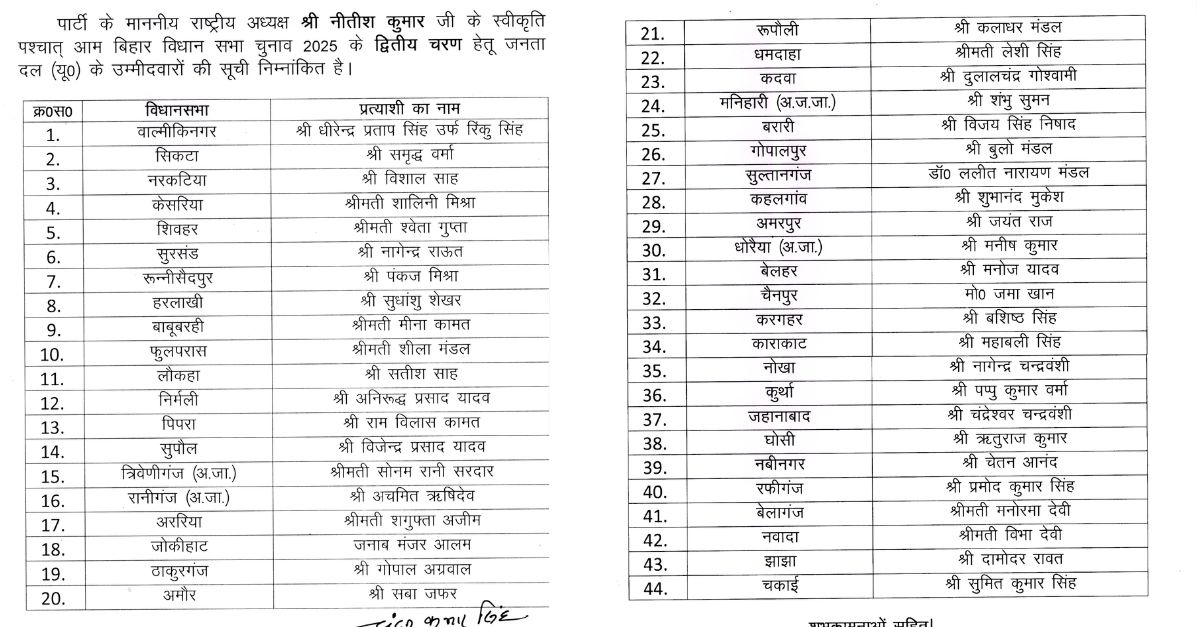 पार्टी के माननीय राष्ट्रीय अध्यक्ष श्री नीतीश कुमार जी के स्वीकृति
पश्चात् आम बिहार विधान सभा चुनाव 2025 के द्वितीय चरण हेतू जनता
दल (यू0) के उम्मीदवारों की सूची निम्नांकित है।
क्र0स0 विधानसभा प्रत्याशी का नाम
1. वाल्मीकिनगर श्री धीरेन्द्र प्रताप सिंह उर्फ रिंकु सिंह
2. सिकटा श्री समृद्ध वर्मा
3. नरकटिया श्री विशाल साह
4. केसरिया श्रीमती शालिनी मिश्रा
5. शिवहर श्रीमती श्वेता गुप्ता
6. सुरसंड श्री नागेन्द्र राऊत
7. रून्नीसैदपुर श्री पंकज मिश्रा
8. हरलाखी श्री सुधांशु शेखर
9. बाबूबरही श्रीमती मीना कामत
10. फुलपरास श्रीमती शीला मंडल
11. लौकहा श्री सतीश साह
12. निर्मली श्री अनिरूद्ध प्रसाद यादव
13. पिपरा श्री राम विलास कामत
14. सुपौल श्री विजेन्द्र प्रसाद यादव
15. त्रिवेणीगंज (अ.जा.) श्रीमती सोनम रानी सरदार
16. रानीगंज (अ.जा.) श्री अचमित ऋषिदेव
17. अररिया श्रीमती शगुफ्ता अजीम
18. जोकीहाट जनाब मंजर आलम
19. ठाकुरगंज श्री गोपाल अग्रवाल
20. अमौर श्री सबा जफर
21. रूपौली श्री कलाधर मंडल
22. धमदाहा श्रीमती लेशी सिंह
23. कदवा श्री दुलालचंद्र गोश्वामी
24. मनिहारी (अ.ज.जा.) श्री शंभु सुमन
25. बरारी श्री विजय सिंह निषाद
26. गोपालपुर श्री बुलो मंडल
27. सुल्तानगंज डॉ0 ललीत नारायण मंडल
28. कहलगांव श्री शुभानंद मुकेश
29. अमरपुर श्री जयंत राज
30. धोरैयां (अ.जा.) श्री मनीष कुमार
31. बेलहर श्री मनोज यादव
32. चैनपुर मो0 जमा खान
33. करगहर श्री बशिष्ठ सिंह
34. काराकाट श्री महाबली सिंह
35. नोखा श्री नागेन्द्र चन्द्रवंशी
36. कुर्था श्री पप्पु कुमार वर्मा
37. जहानाबाद श्री चंद्रेश्वर चन्द्रवंशी
38. घोसी श्री ऋतुराज कुमार
39. नबीनगर श्री चेतन आनंद
40. रफीगंज श्री प्रमोद कुमार सिंह
41. बेलागंज श्रीमती मनोरमा देवी
42. नवादा श्रीमती विभा देवी
43. झाझा श्री दामोदर रावत
44. चकाई श्री सुमित कुमार सिंह
कुमार सिंह
शुभकामनाओं सहित।